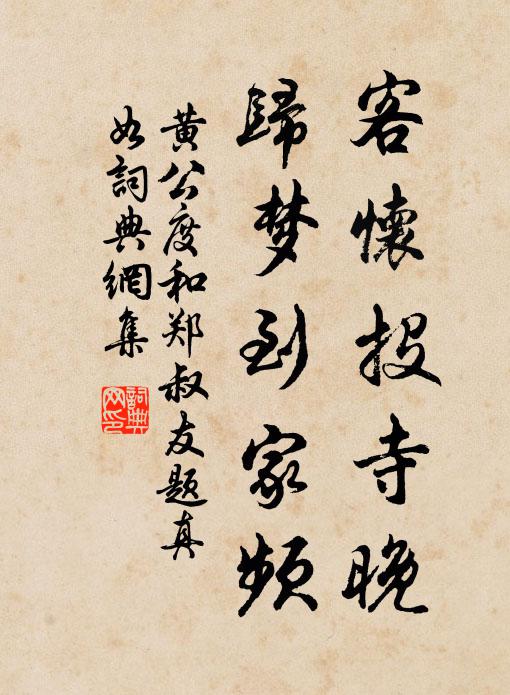 客懷投寺晚
歸梦到家頻
黄公度和郑叔友題真
如詞典網集
詞典网印